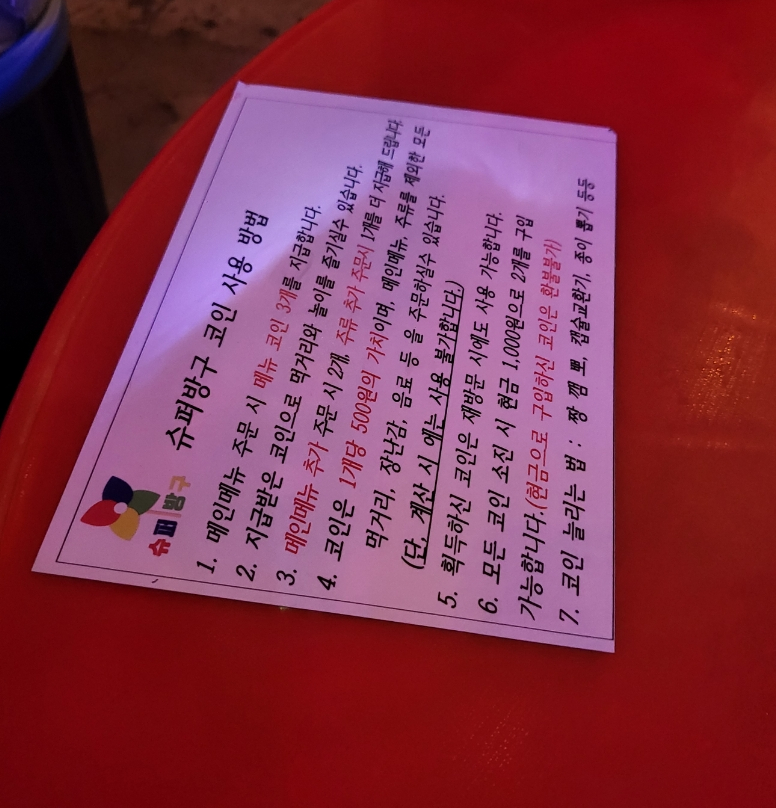 슈퍼방구
슈퍼방구 코인 사용 방법
1. 메인메뉴 주문 시 메뉴 코인 3개를 지급합니다.
2. 지급받은 코인으로 먹거리와 놀이를 즐기실수 있습니다.
3. 메인메뉴 추가 주문 시 2개, 주류 추가 주문시 1개를 더 지급해 드립니다.
4. 코인은 1개당 500원의 가치이며, 메인메뉴, 주류를 제외한 모든
먹거리, 장난감, 음료 등 을 주문하실수 있습니다.
(단, 계산 시 에는 사용 불가합니다.)
5. 획득하신 코인은 재방문 시에도 사용 가능합니다.
6. 모든 코인 소진 시 현금 1,000원으로 2개를 구입
가능합니다.(현금으로 구입하신 코인은 환불불가)
7. 코인 늘리는 법 : 짱 깸 뽀, 캡슐교환기, 종이 뽑기 등등